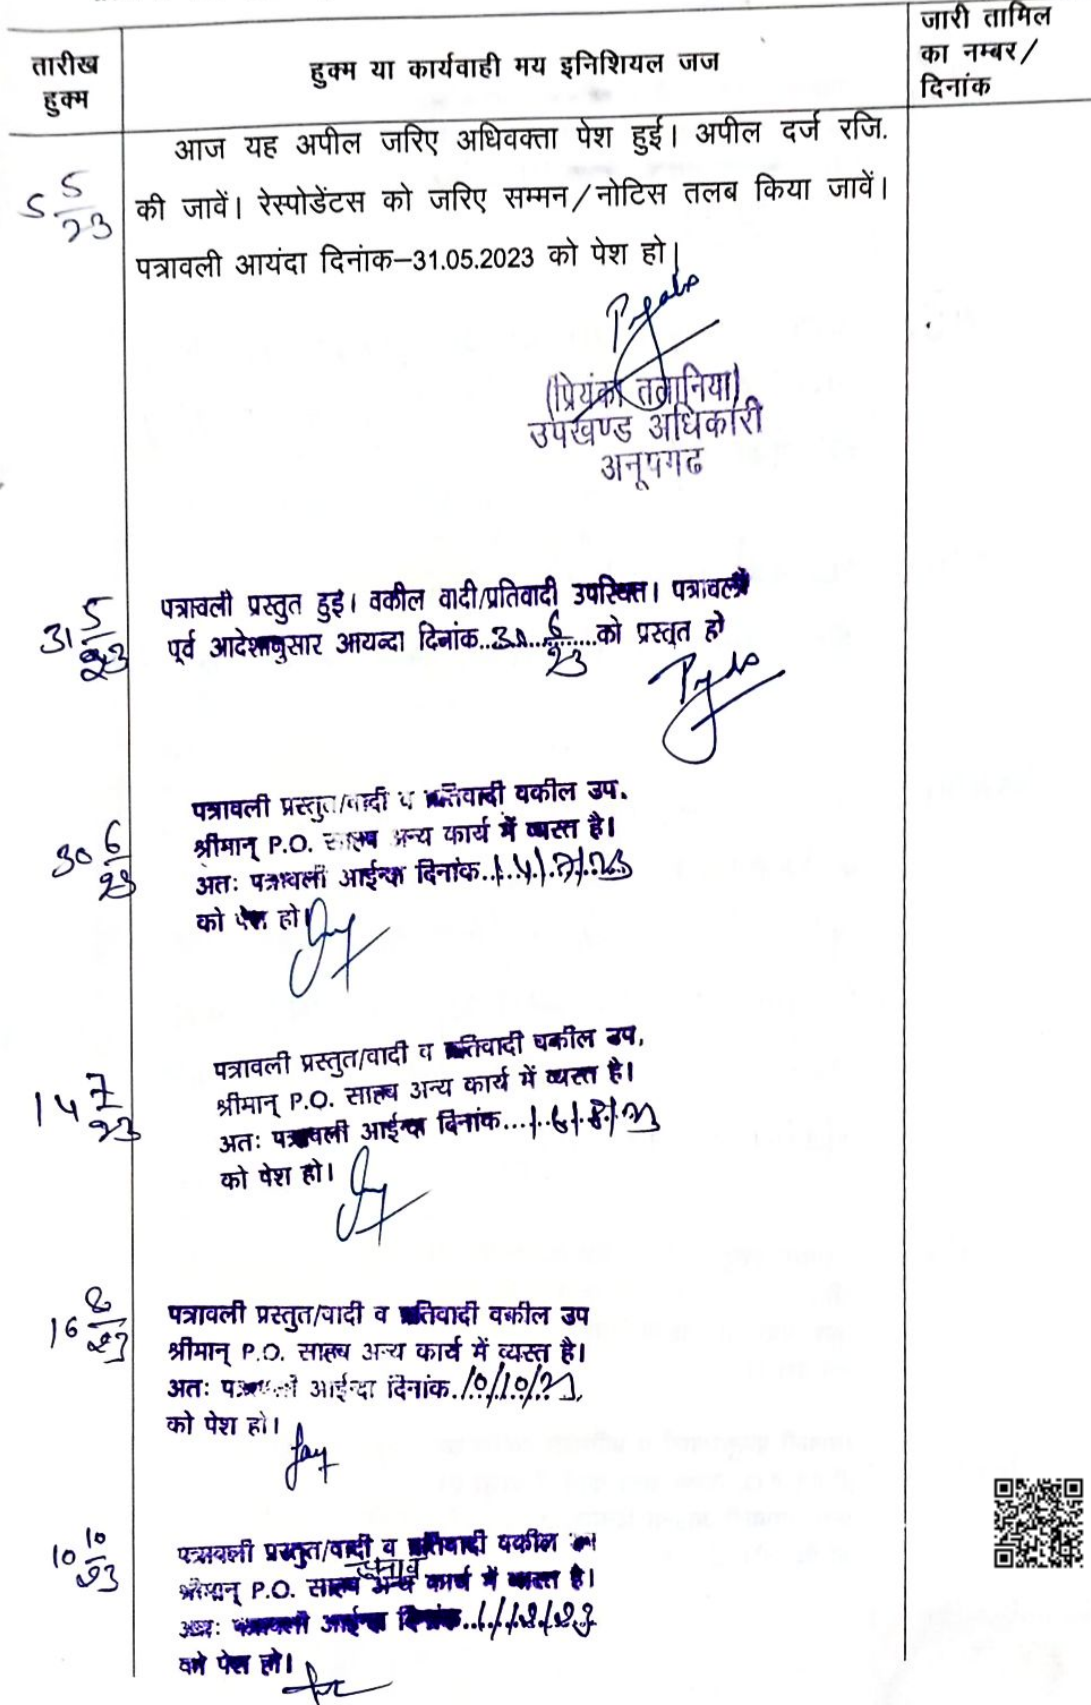 तारीख
हुक्म
हुक्म या कार्यवाही मय इनिशियल जज
जारी तामिल
का नम्बर/
दिनांक
5 5/23
आज यह अपील जरिए अधिवक्ता पेश हुई। अपील दर्ज रजि.
की जावें। रेस्पोडेंटस को जरिए सम्मन/नोटिस तलब किया जावें।
पत्रावली आयंदा दिनांक–31.05.2023 को पेश हो।
(प्रियंका तलानिया)
उपखण्ड अधिकारी
अनूपगढ
31 5/23
पत्रावली प्रस्तुत हुई। वकील वादी/प्रतिवादी उपस्थित। पत्रावली
पूर्व आदेशानुसार आयन्दा दिनांक..30...6/23...को प्रस्तुत हो
30 6/23
पत्रावली प्रस्तुत/वादी व प्रतिवादी वकील उप.
श्रीमान् P.O. साहब अन्य कार्य में व्यस्त है।
अतः पत्रावली आईन्दा दिनांक..14/7/23
को पेश हो।
14 7/23
पत्रावली प्रस्तुत/वादी व प्रतिवादी वकील उप.
श्रीमान् P.O. साहब अन्य कार्य में व्यस्त है।
अतः पत्रावली आईन्दा दिनांक...16/8/23
को पेश हो।
16 8/23
पत्रावली प्रस्तुत/वादी व प्रतिवादी वकील उप
श्रीमान् P.O. साहब अन्य कार्य में व्यस्त है।
अतः पत्रावली आईन्दा दिनांक.10/10/23
को पेश हो।
10 10/23
पत्रावली प्रस्तुत/वादी व प्रतिवादी वकील उप
चुनाव
श्रीमान् P.O. साहब अन्य कार्य में व्यस्त है।
अतः पत्रावली आईन्दा दिनांक.1/12/23
को पेश हो।